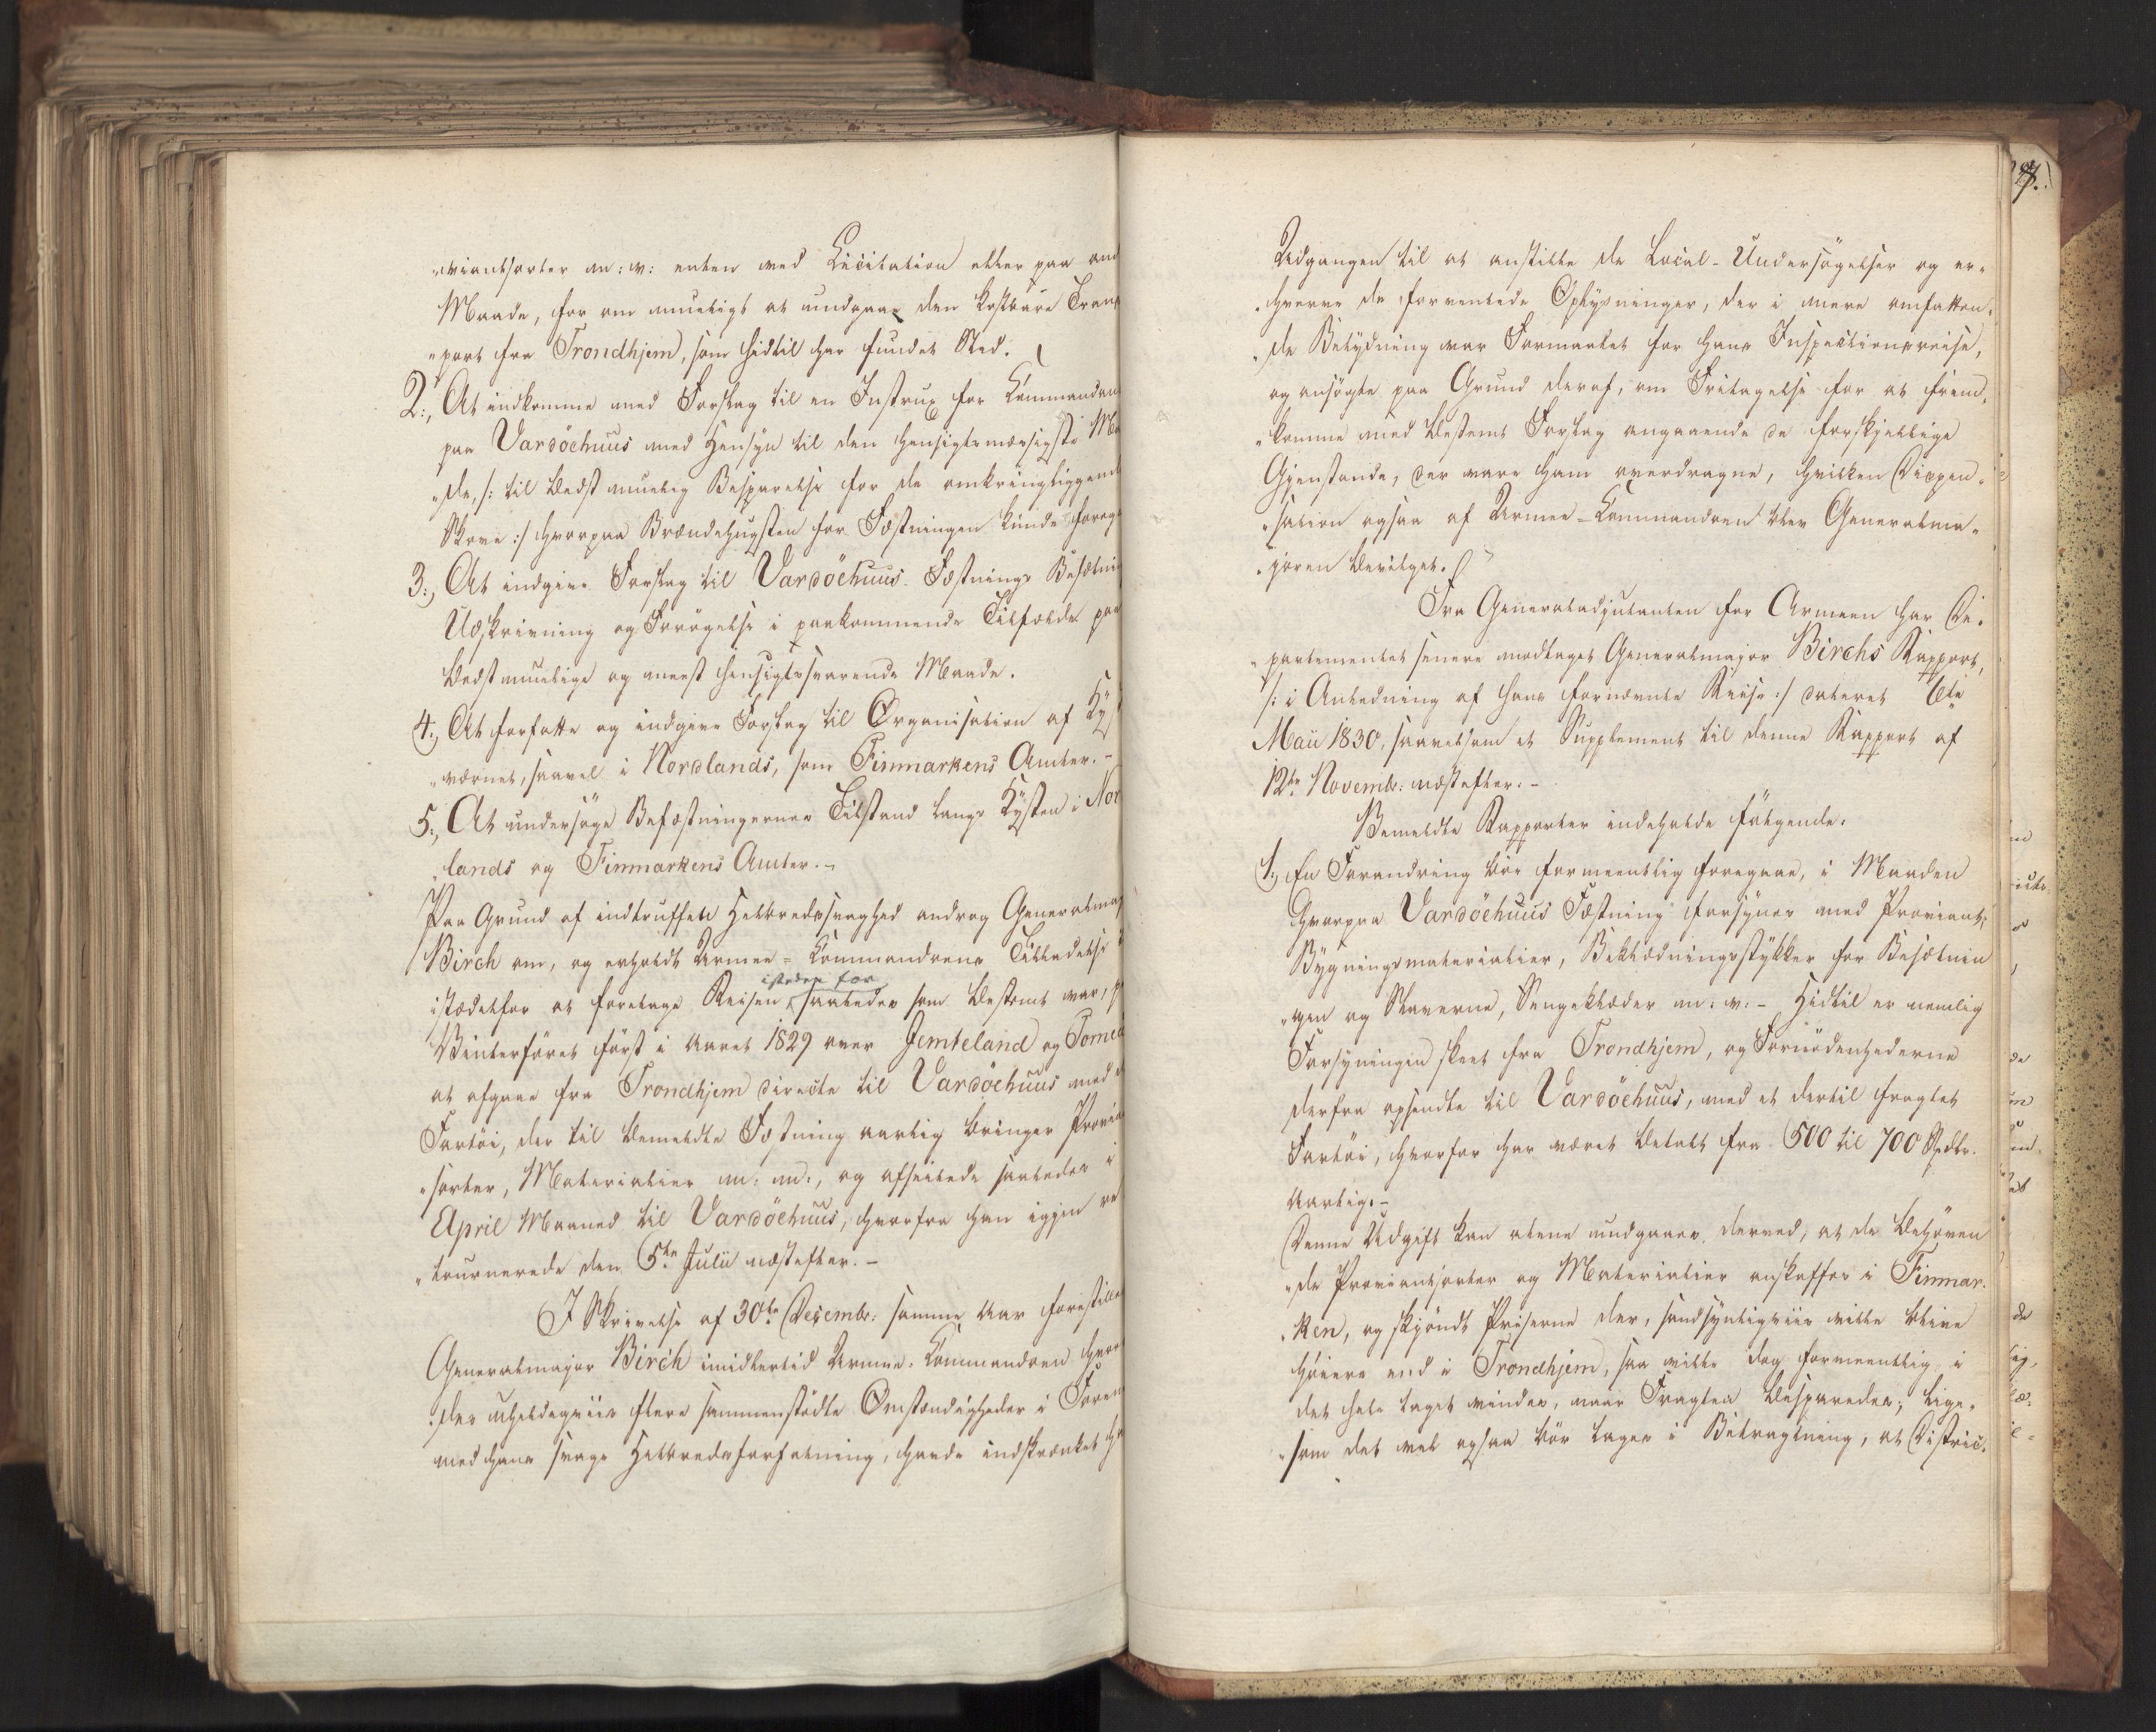 „viantsorter m: v: enten ved Licitation eller paa and
Maade, for om mueligt at undgaae den kostbare Trans
„port fra Trondhjem, som hidtil har fundet Sted.
2., At indkomme med Forslag til en Instrux for Kommandan
paa Vardöehuus med Hensyn til den hensigtsmæssigste Ma
„de, /: til bedst muelig Besparelse for de omkringliggende
Skove :/ hvorpaa Brændehugsten for Fæstningen kunde foreg
3., At indgive Forslag til Vardöehuus Fæstnings Besætning
Udskrivning og Forøgelse i paakommende Tilfælde paa
bedst muelige og meest hensigtssvarende Maade.
4., At forfatte og indgive Forslag til Organisation af Kyst
„værnet, saavel i Nordlands, som Finmarkens Amter. -
5., At undersøge Befæstningernes Tilstand langs Kysten i Nor
„lands og Finmarkens Amter. -
Paa Grund af indtruffen Helbredssvaghed androg Generalmaj
Birch om, og erholdt Armee-Kommandoens Tilladelse
isteden for
istædetfor at foretage Reisen saaledes som bestemt var, p
Vinterföret först i Aaret 1829 over Jemteland og Torneå
at afgaae fra Trondhjem directe til Vardöehuus med
Fartöi, der til bemeldte Fæstning aarlig bringer Provia
„sorter, Materialier m: m:, og afseilede saaledes i
April Maaned til Vardöehuus, hvorfra han igjen re
„tournerede den 5te Julii næstefter. -
I Skrivelse af 30te Decembr: samme Aar forestillede
Generalmajor Birch imidlertid Armee-Commandoen hvor
„des uheldigviis flere sammenstödte Omstændigheder i Foren
med hans svage Helbredsforfatning, havde indskrænket h
Udgangen til at anstille de Local-Undersögelser og er„
„hverve de forventede Oplysninger, der i mere omfatten„
„de Betydning var Formaalet for hans Inspectionsreise,
og ansögte paa Grund deraf, om Fritagelse for at frem„
„komme med bestemt Forslag angaaende de forskjellige
Gjenstande, der vare ham overdragne, hvilken Dispen„
„sation ogsaa af Armee-Commandoen blev Generalma„
„joren bevilget.
Fra Generaladjutanten for Armeen har De„
„partementet senere modtaget Generalmajor Birchs Rapport,
/: i Anledning af hans fornævnte Reise :/ dateret 6te
Maii 1830, saavelsom et Supplement til denne Rapport af
12te Novembr: næstefter. -
Bemeldte Rapporter indeholde fölgende:
1., En Forandring bör formeentlig foregaae, i Maaden
hvorpaa Vardöehuus Fæstning forsynes med Proviant,
Bygningsmaterialier, Beklædningsstykker for Besætnin
„gen og Slaverne, Sengeklæder m: v: - Hidtil er nemlig
Forsyningen skeet fra Trondhjem, og Fornödenhederne
derfra opsendte til Vardöehuus, med et dertil fragtet
Fartöi, hvorfor har været betalt fra 500 til 700 Spdlr.
aarlig. -
Denne Udgift kan alene undgaaes derved, at de behöven
„de Proviantsorter og Materialier anskaffes i Finmar„
„ken, og skjöndt Priserne der, sandsynligviis ville blive
höiere end i Trondhjem, saa ville dog formeentlig i
det hele taget vindes, naar Fragten besparedes; lige„
„som det vel ogsaa bör tages i Betragtning, at Distric„